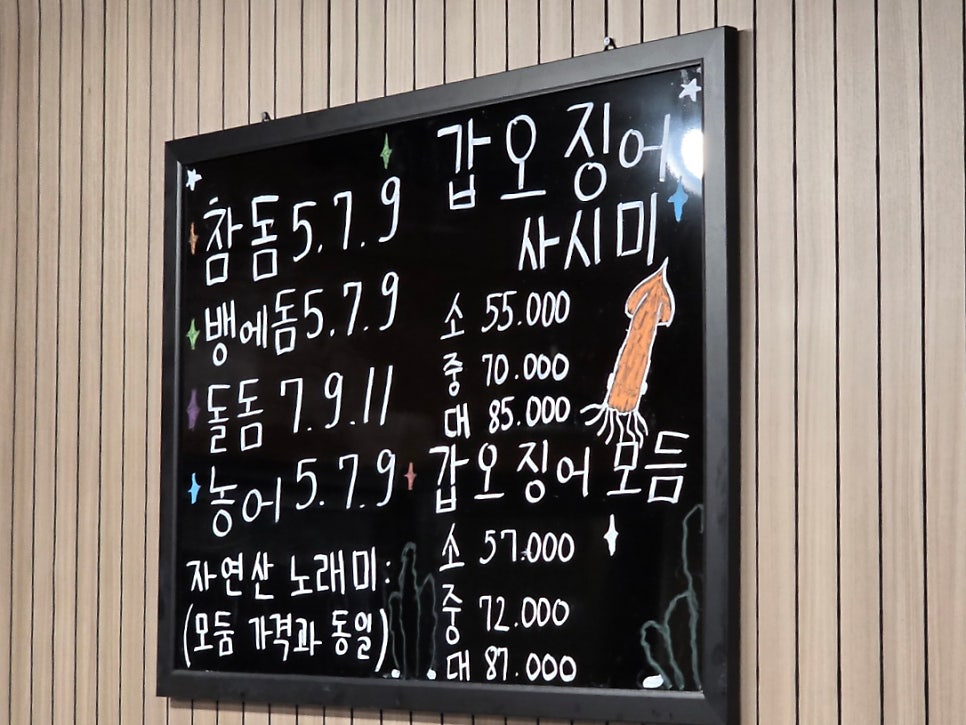 참돔 5.7.9
뱅에돔 5.7.9
돌돔 7.9.11
농어 5.7.9
자연산 노래미:
(모둠 가격과 동일)
갑오징어
사시미
소 55.000
중 70.000
대 85.000
갑오징어 모듬
소 57.000
중 72.000
대 87.000